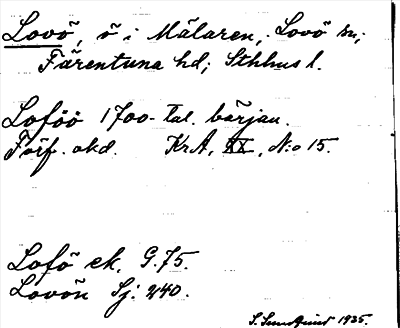 Lovö, ö i Mälaren, Lovö sn;
Färentuna hd; Sthlms l.
Loföö 1700-tal. början.
Förf. okd. KrA, XX, N:o 15.
Lofö ek. G.75.
Lovön Sj. 240.
S. Sundquist 1935.